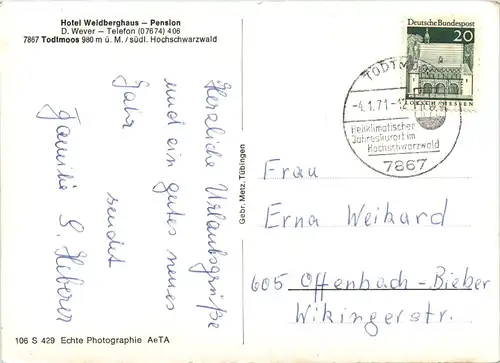 Hotel Weldberghaus – Pension
D. Wever – Telefon (07674) 406
7867 Todtmoos 980 m ü. M. / südl. Hochschwarzwald
Herzliche Urlaubsgrüße
und ein gutes neues
Jahr
sendet
Familie G. Heberer
106 S 429 Echte Photographie AeTA
Gebr. Metz, Tübingen
Deutsche Bundespost
20
LORSCH/HESSEN
TODTMOOS
-4.1.71-12
Heilklimatischer
Jahreskurort im
Hochschwarzwald
7867
Frau
Erna Weikard
605 Offenbach-Bieber
Wikingerstr.